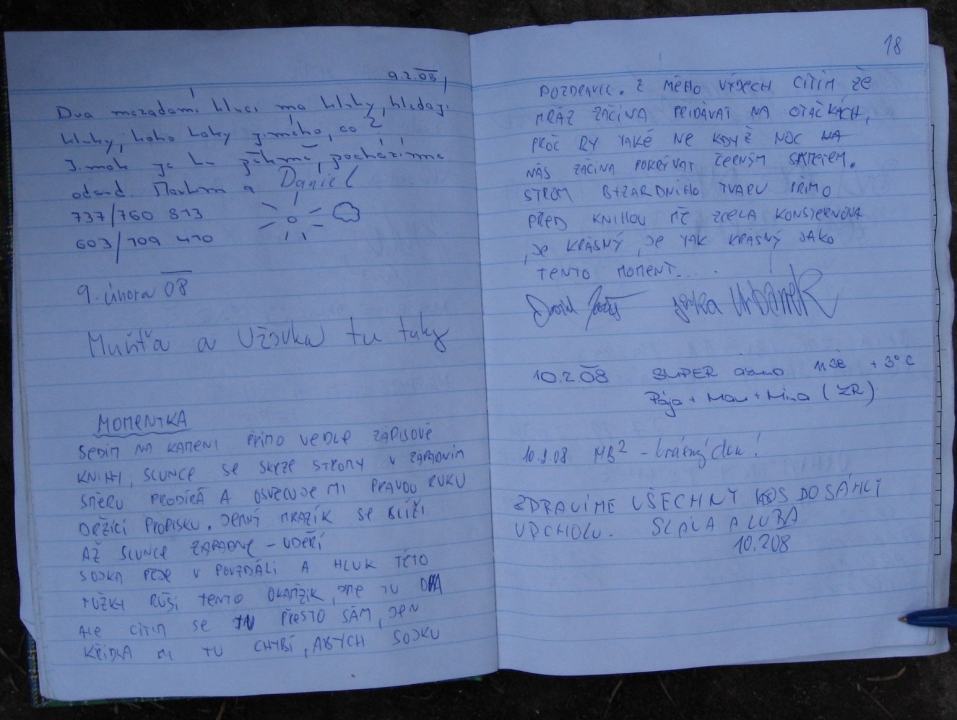 9.2.08,
Dva mezadami kluci ma kluky, hledaj
kluky, koho kaky jiného, co?
Jinak je to pěkné, pocházíme
odend. Martin a Daniel
737/760 813
603/709 470
9. února 08
Muňťa a Užovka tu taky
MOMENTKA
SEDÍM NA KAMENI PŘÍMO VEDLE ZÁPISOVÉ
KNIHY, SLUNCE SE SKRZE STROMY V ZÁPADNÍM
SMĚRU PRODÍRÁ A OSVĚCUJE MI PRAVOU RUKU
DRŽÍCÍ PROPISKU. JEMNÝ MRAZÍK SE BLÍŽÍ
AŽ SLUNCE ZAPADNE - UDEŘÍ
SOJKA PĚJE V POVZDÁLÍ A HLUK TÉTO
TUŽKY RUŠÍ TENTO OKAMŽIK, JSME TU DVA
ALE CÍTÍM SE TU PŘESTO SÁM, JEN
KŘÍDLA MI TU CHYBÍ, ABYCH SOJKU
18
POZDRAVIL. Z MÉHO VÝDECH CÍTÍM ŽE
MRÁZ ZAČÍNÁ PŘIDÁVAT NA OTÁČKÁCH,
PROČ BY TAKÉ NE KDYŽ NOC NA
NÁS ZAČÍNÁ POKRÝVAT ČERNÝM
STROM BYZARDNÍHO TVARU PŘÍMO
PŘED KNIHOU MĚ ZCELA KONSTERNOVA
JE KRÁSNÝ, JE TAK KRÁSNÝ JAKO
TENTO MOMENT...
Jirka Urbánek
10.2.08 SUPER 1138 +3°C
Pája + + (ZR)
10.2.08 MB² - krásný den!
ZDRAVÍME VŠECHNY KDOS DOSÁHLI
VRCHOLU. SLÁVA A LUBA
10.208